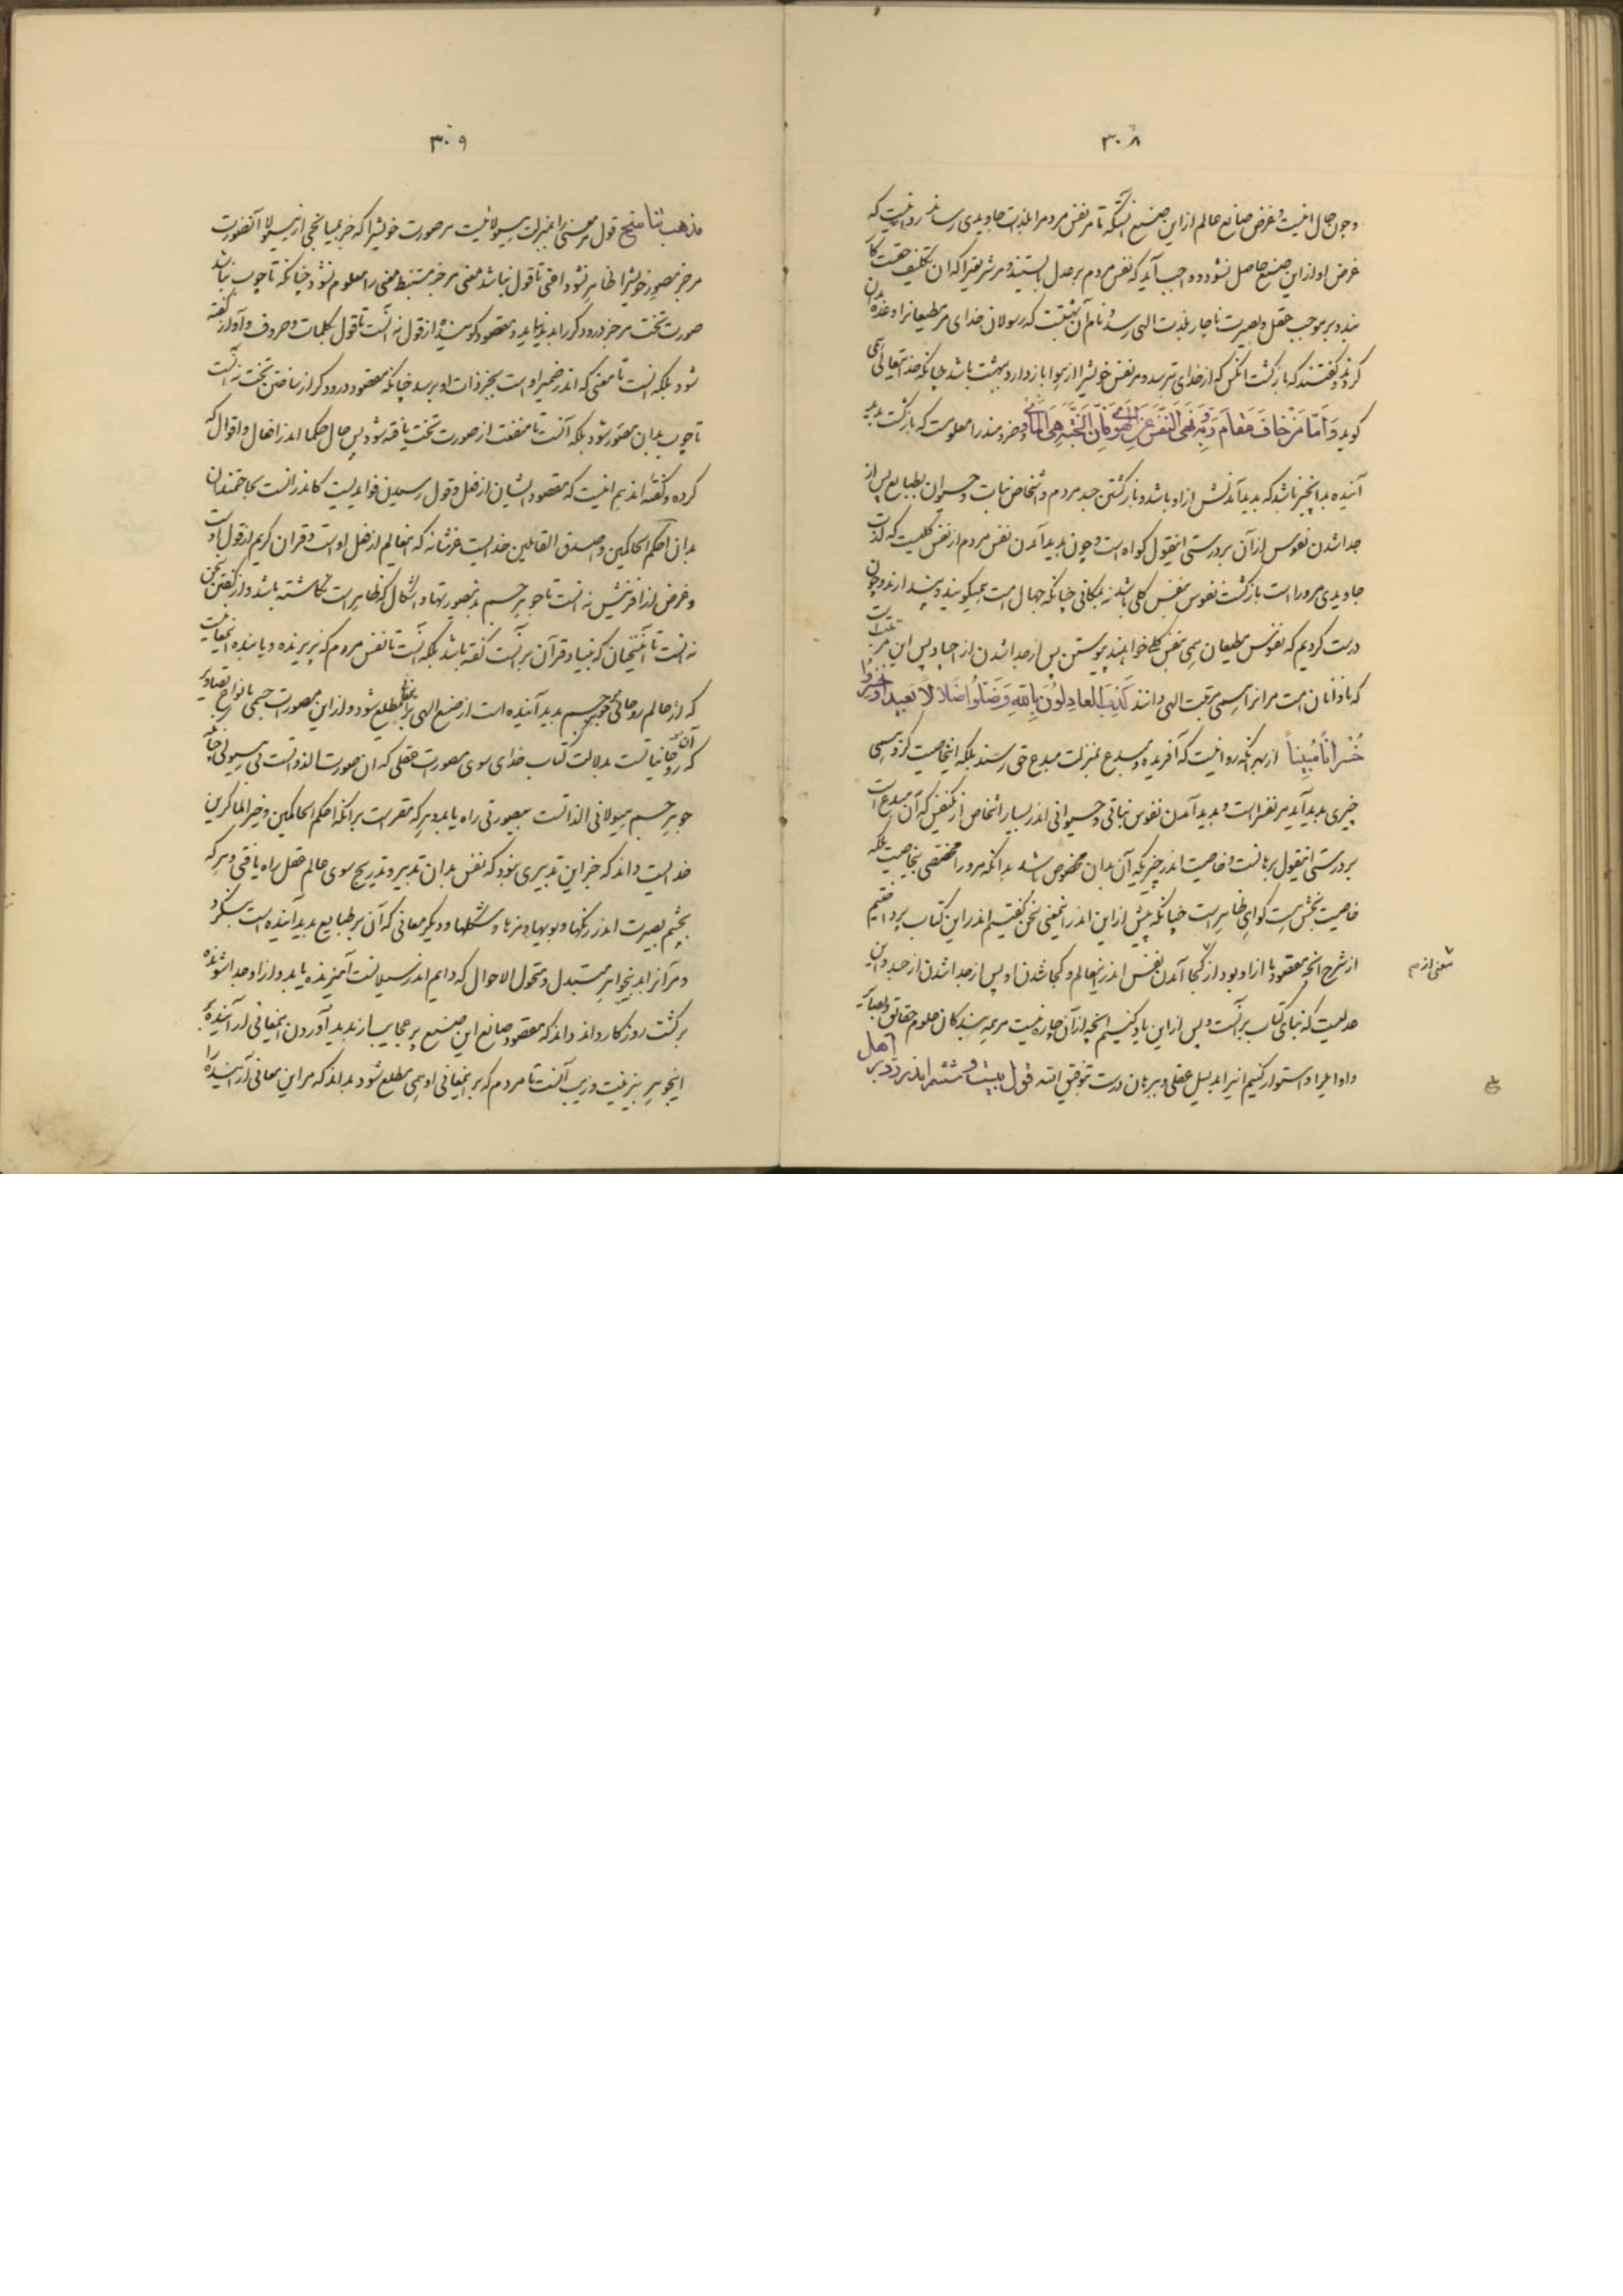 ۳۰۸
وچون حال اینست و غرض صانع عالم از این صنع آنستکه تا مر نفس مردم را بلذات جاویدی رساند روا نیست که
غرض او از این صنع حاصل نشود و واجب آید که نفس مردم بر عدل بایستند و مر شریعتیرا که آن تکلیف حقست کار
بندد و بر موجب عقل و بصیرت تا چار بلذت الهی رسد و نام آن بهشتست که رسولان خدای مر مطیعانرا وعده بدان
کردند و گفتند که بازگشت آنکس که از خدای بترسد و مر نفس خویشرا از هوا باز دارد بهشت باشد چنانکه خدایتعالی همی
گوید وَاَمّا مَنْ خافَ مَقامَ رَبِّهِ وَ نَهَی النَّفْسَ عَنِ الْهَوی فَاِنَّ الْجَنَّةَ هِیَ الْمَأوی و خردمند را معلومست که بازگشت پدید
آینده بدانچیز باشد که پدید آمدنش از او باشد و بازگشتن جسد مردم و اشخاص نبات و حیوان بطبایع پس از
جدا شدن نفوس از آن بر درستی اینقول گواه است و چون پدید آمدن نفس مردم از نفس کلیست که لذات
جاویدی مر او راست بازگشت نفوس بنفس کلی باشد نه بمکانی چنانکه جهال امت همیگویند و پندارند و چون
درست کردیم که نفوس مطیعان همی بنفس کل خواهند پیوستن پس از جدا شدن از اجساد پس این مرتبت است
که نادانان امت مر آنرا همی مرتبت الهی دانند کَذِبَ العادِلُونَ بِاللهِ وَضَلُّوا ضَلالاً بَعیداً وَ خَسِرُوا
خُسْراناً مُبیناً از بهر آنکه روا نیست که آفریده و مبدع بمنزلت مبدع حق رسند بلکه اینخاصیت کزو همی
چیزی پدید آید مر نفسرا است و پدید آمدن نفوس نباتی و حیوانی اندر بسیار اشخاص از یکنفس که آن مبدع است
بر درستی اینقول برهانست و خاصیت اندر چیزیکه آن بدان مخصوص باشد بدانکه مر او را مختصی بخاصیت بلکه
خاصیت بخش است گواهی ظاهر است چنانکه پیش از این اندر اینمعنی سخن گفتیم اندر این کتاب پرداختیم
از شرح آنچه مقصود ما از او بود از کجا آمدن نفس اندر اینعالم و کجا شدن او پس از جدا شدن از جسد و این
معنی از م
معنیست که بنای کتاب بر آنست و پس از این یاد کنیم آنچه از آن چاره نیست مر همه پسندگان علوم حقایق و
و استوار کنیم آنرا بدلیل عقلی و ببرهان درست بتوفیق الله قول بیست و ششم اندر رد بر اهل
۳۰۹
مذهب تناسخ قول مر معنی را بمنزلت هیولا نیست مر صورت خویشرا که جز بمیانجی از هیولا آنصورت
مر جز مصور خویشرا ظاهر نشود اعنی تا قول نباشد معنی مر جز مستنبط معنی را معلوم نشود چنانکه تا چوب نباشد
صورت تخت مر جز درودگر را پدید نیاید و مقصود گوینده از قول نه آنست تا قول بکلمات و حروف و آواز گفته
شود بلکه آنست تا معنی که اندر ضمیر اوست بجز ذات او برسد چنانکه مقصود درودگر از ساختن تخت نه آنست
تا چوب بدان مصور شود بلکه آنست تا منفعت از صورت تخت یافته شود پس حال حکما اندر افعال و اقوال که
کرده و گفته اندیم اینست که مقصود ایشان از فعل و قول رسیدن فوایدیست کاندر آنست بحاجتمندان
بدان احکم الحاکمین و اصدق القائلین خدایست عزشانه که اینعالم از فعل اوست و قران کریم از قول اوست
و غرض از آفرینش نه آنست تا جوهر جسم بدینصورتها و اشکال که ظاهر است نگاشته باشد و از گفتن سخن
نه آنست تا آن سخنان که بنیاد قرآن بر آنست گفته باشد بلکه آنست تا نفس مردم که پذیرنده و یابنده اینمعانیست
که از عالم روحانی بر جوهر جسم پدید آینده است از صنع الهی بر آن معانی مطلع شود و از این مصورات جسمی بانواع تصاویر
که آن روحانیاتست بدلالت کتاب خدای سوی مصورات عقلی که آن صورت الذواتست نی هیولی چنانکه
جوهر جسم هیولانی الذاتست بصورتی راه یابد و هر که مقر است بر آنکه احکم الحاکمین و خیر الماکرین
خدایست داند که جز این تدبیری نبود که نفس بدان تدبیر و تدریج سوی عالم عقل راه یافتی و هر که
بچشم بصیرت اندر رنگها و بویها و مزها و شکلها و دیگر معانی که آن بر طبایع پدید آینده است بنگرد
و مر آنرا بدین جواهر مستبدل و متحول الاحوال که دایم اندر سیلانست آمیزنده یابد و از او جدا شونده
بر گشت روزگار داند داند که مقصود صانع این صنع پر عجایب از پدید آوردن اینمعانی اندر آینده
اینجوهر بزینت و زیب آنست تا مردم که بر اینمعانی او همی مطلع شود بداند که مر این معانی آراینده را